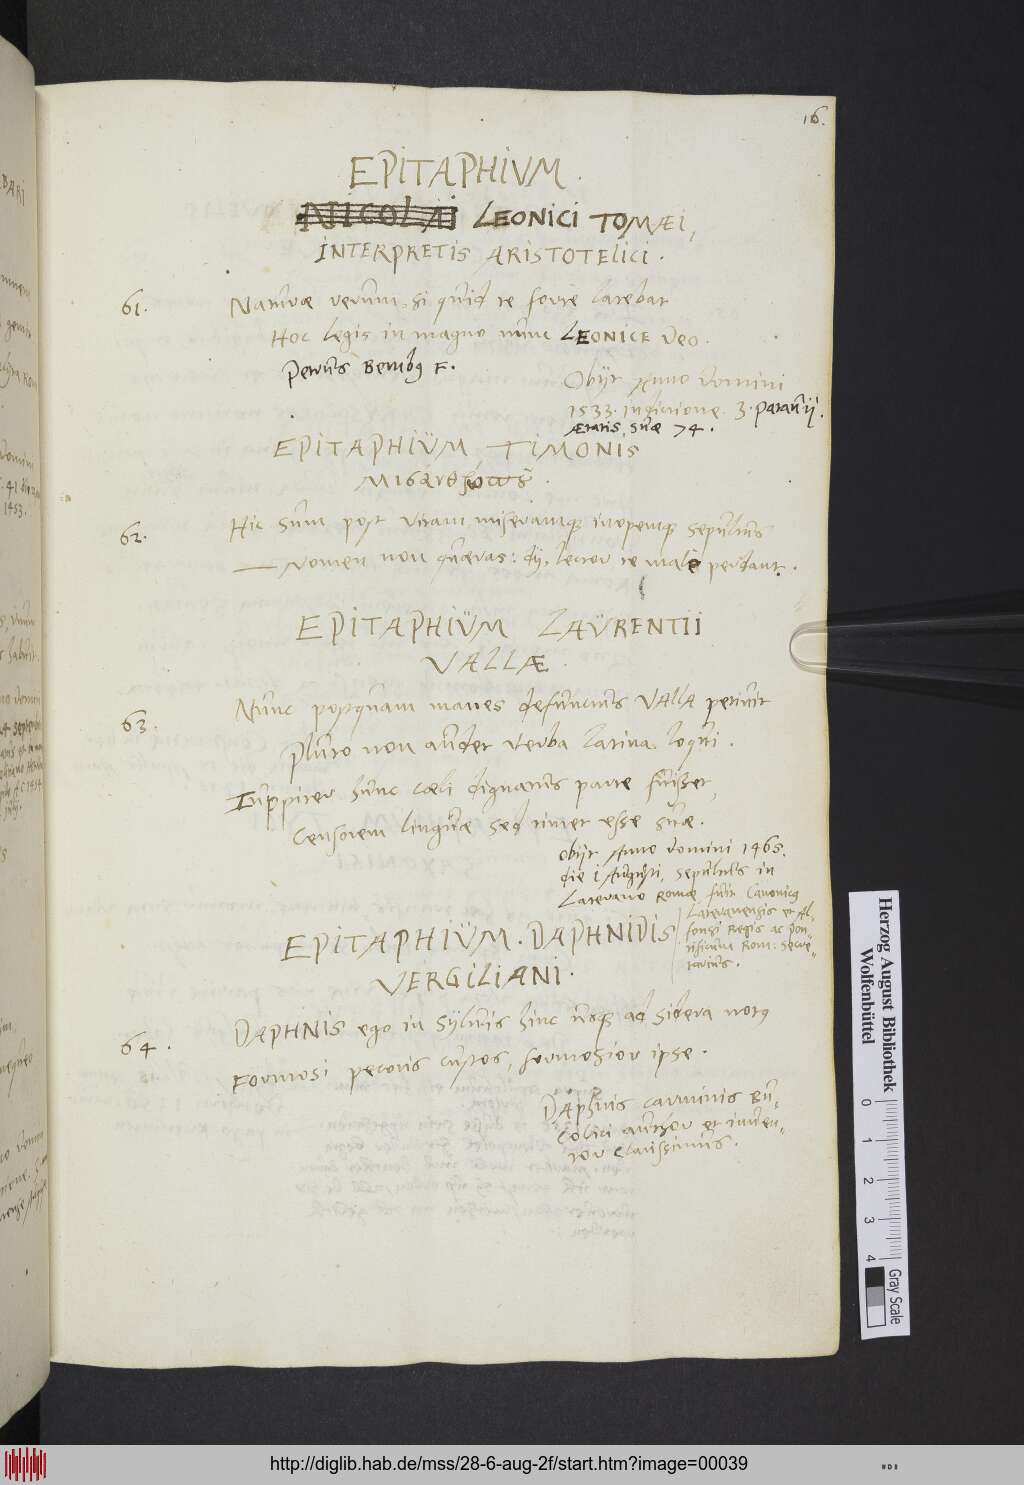 16.
EPITAPHIVM.
NICOLAI LEONICI TOMÆI,
INTERPRETIS ARISTOTELICI.
61. Naturæ verum, si quid te forte latebat
Hoc legis in magno nunc LEONICE Deo.
Petrus Bembus F.
Obijt Anno Domini
1533. indictione 3. Patauij.
Ætatis suæ 74.
EPITAPHIŬM TIMONIS
62. Hic sum post vitam miseramque inopemque sepultus
Nomen non quæras: dij, lector te male perdant.
EPITAPHIŬM LAŬRENTII
VALLÆ.
63. Nunc postquam manes defunctus VALLA petiuit
Pluto non audet verba latina loqui.
Iuppiter hunc cæli dignatus parte fuißet,
Censorem linguæ sed timet esse suæ.
obijt Anno Domini 1465.
die 1 Augusti, sepultus in
Laterano Romæ, fuit Canonicus
Lateranensis et Al-
fonsi Regis ac Pon-
tificum Rom: secre-
tarius.
EPITAPHIŬM. DAPHNIDIS
VERGILIANI.
64. DAPHNIS ego in Syluis hinc usque ad sidera notus
Formosi pecoris custos, formosior ipse.
Daphnis carminis Bu-
colici author et inuen-
tor clarissimus.
Herzog August Bibliothek
Wolfenbüttel
0 1 2 3 4
Gray Scale
http://diglib.hab.de/mss/28-6-aug-2f/start.htm?image=00039